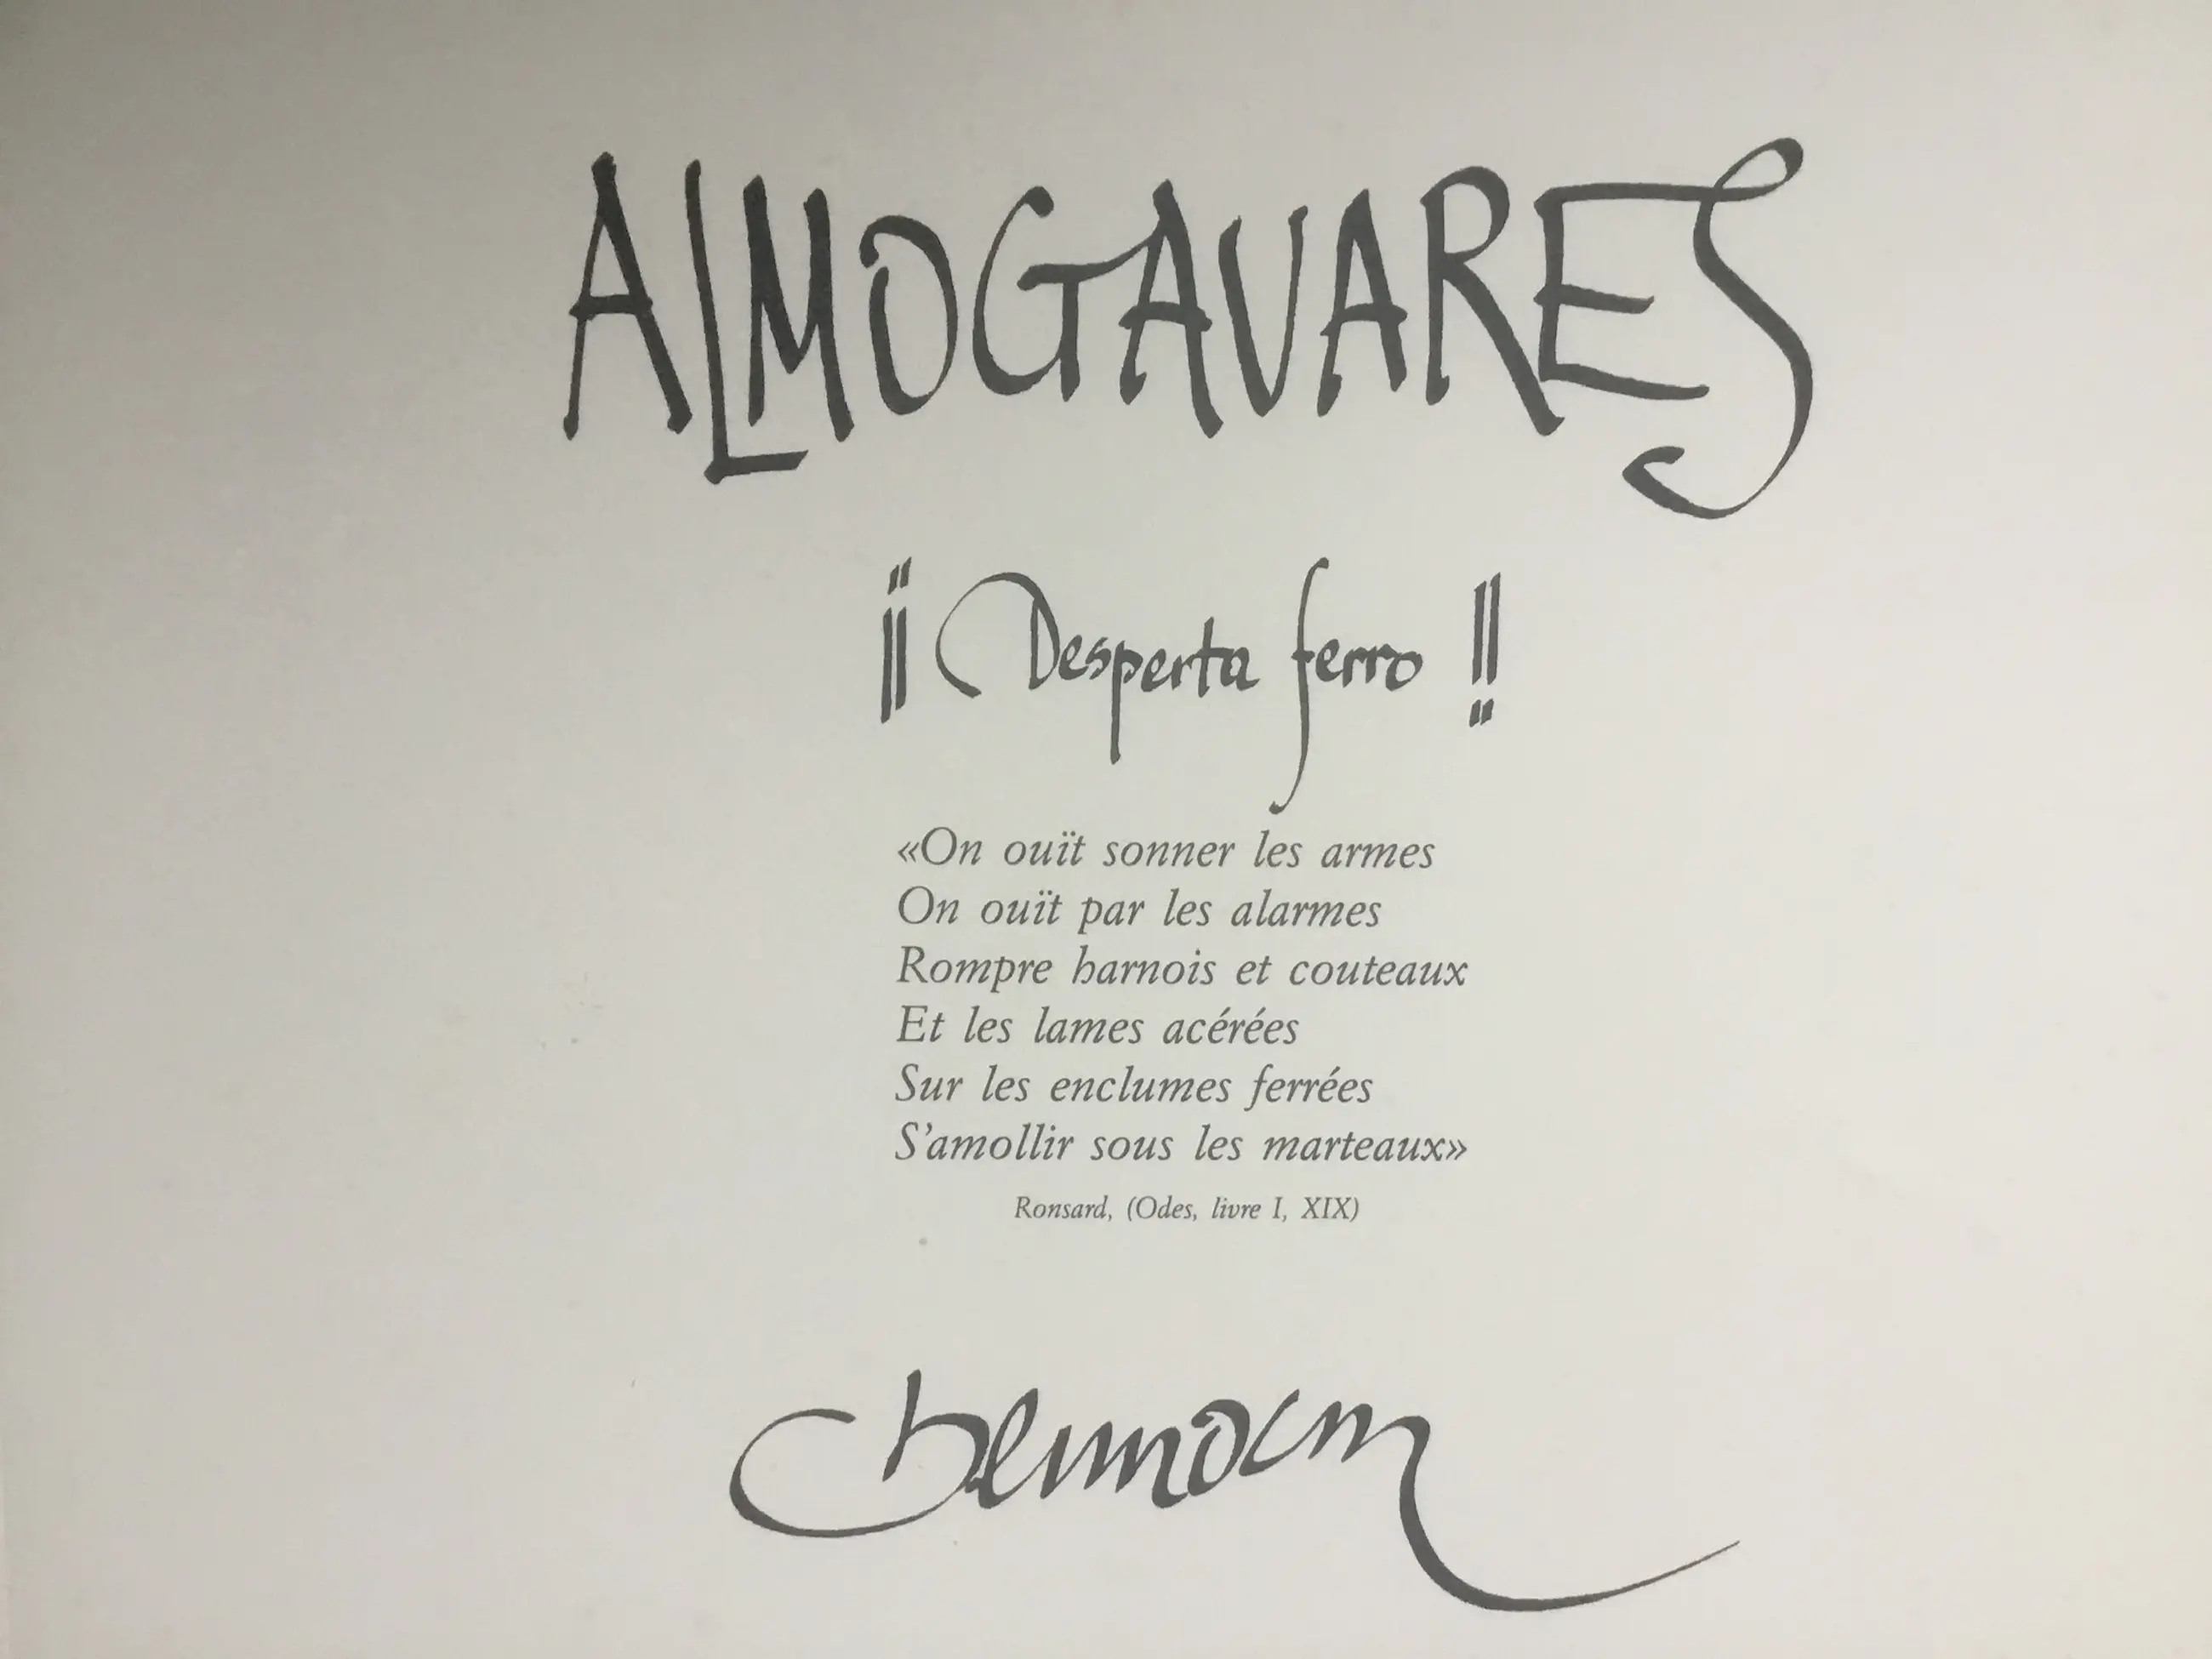 ALMOGAVARES
¡¡Desperta ferro!!
«On ouït sonner les armes
On ouït par les alarmes
Rompre harnois et couteaux
Et les lames acérées
Sur les enclumes ferrées
S’amollir sous les marteaux»
Ronsard, (Odes, livre I, XIX)